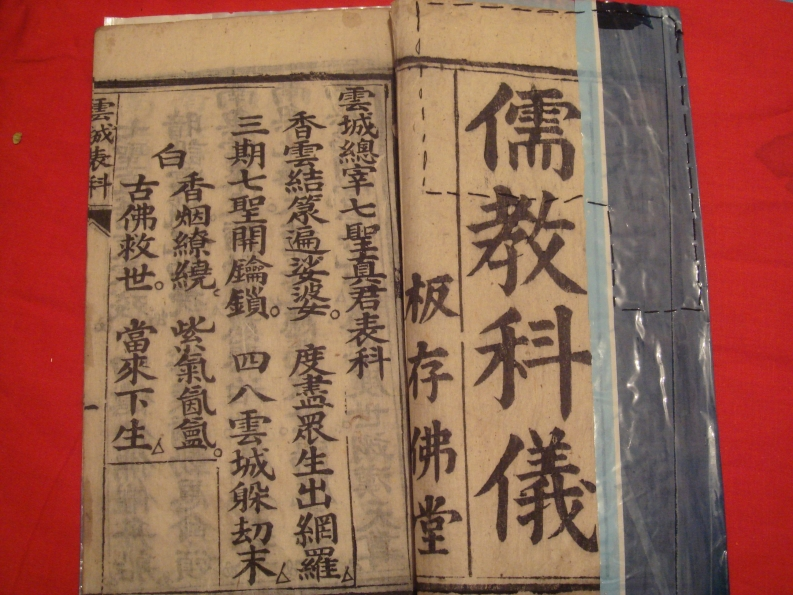 儒教科儀
板存佛堂
雲城總宰七聖真君表科
香雲結篆遍娑婆。度盡眾生出網羅△
三期七聖開鑰鎖。四八雲城躲劫末△
白
香烟繚繞 紫氣氤氳。
古佛救世。當來下生△
雲城表科